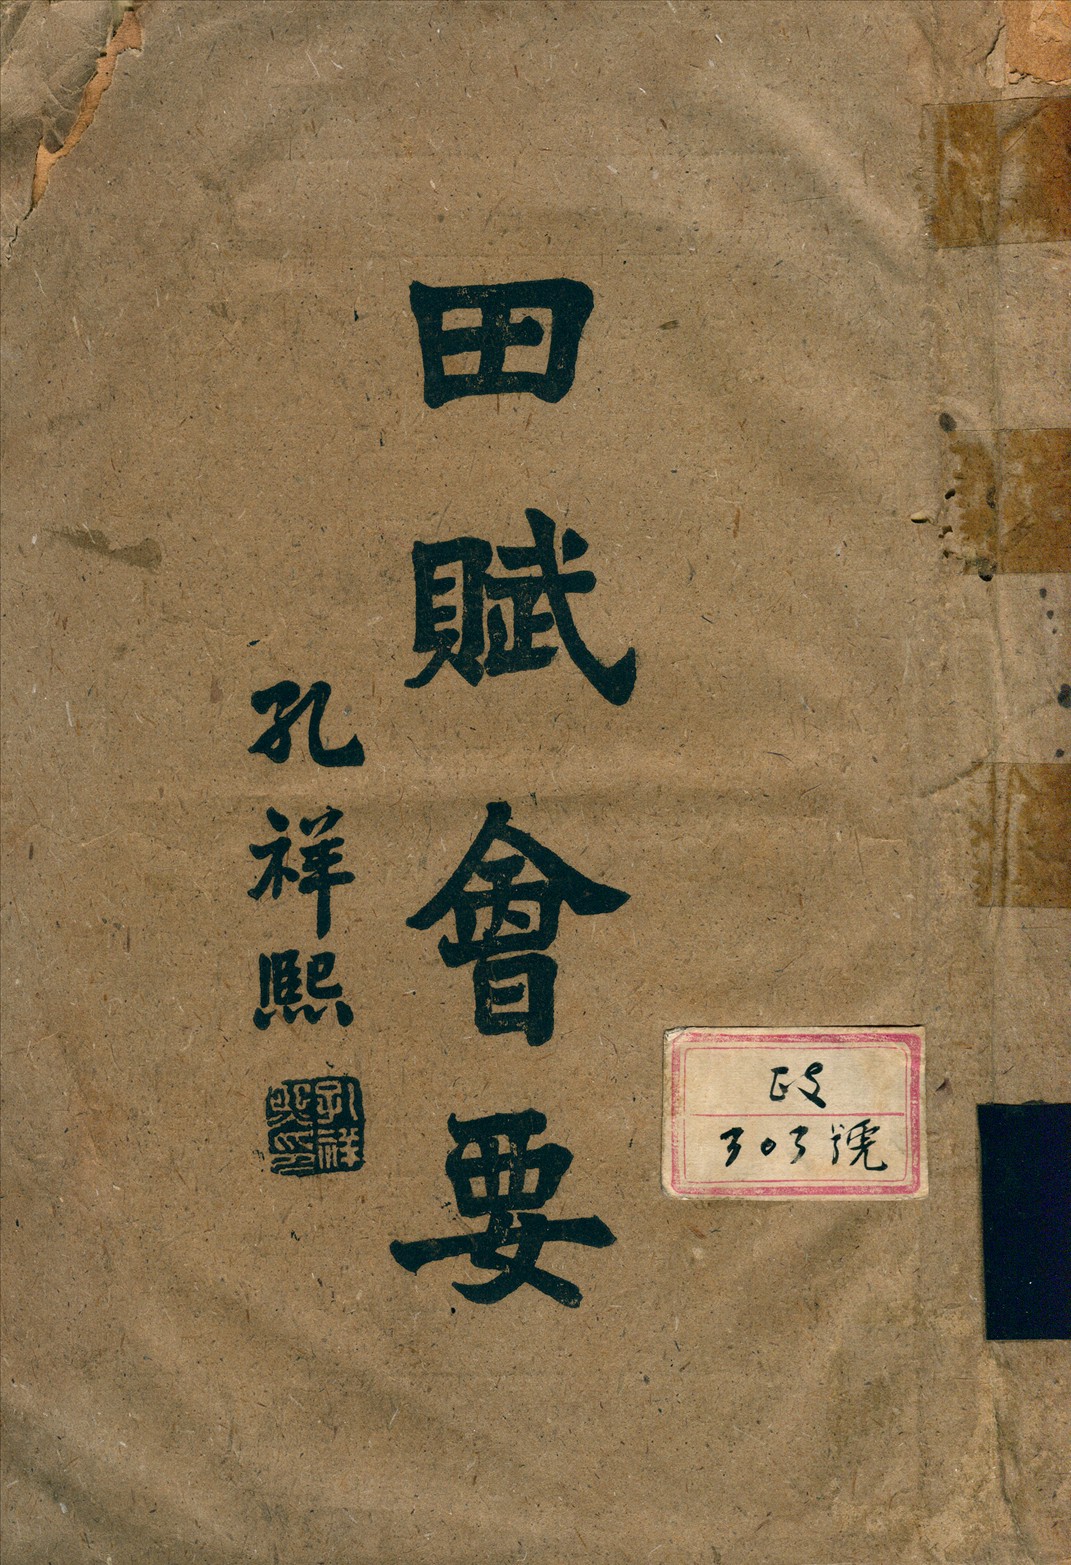 田賦會要
孔祥熙
孔祥熙印
政
303號